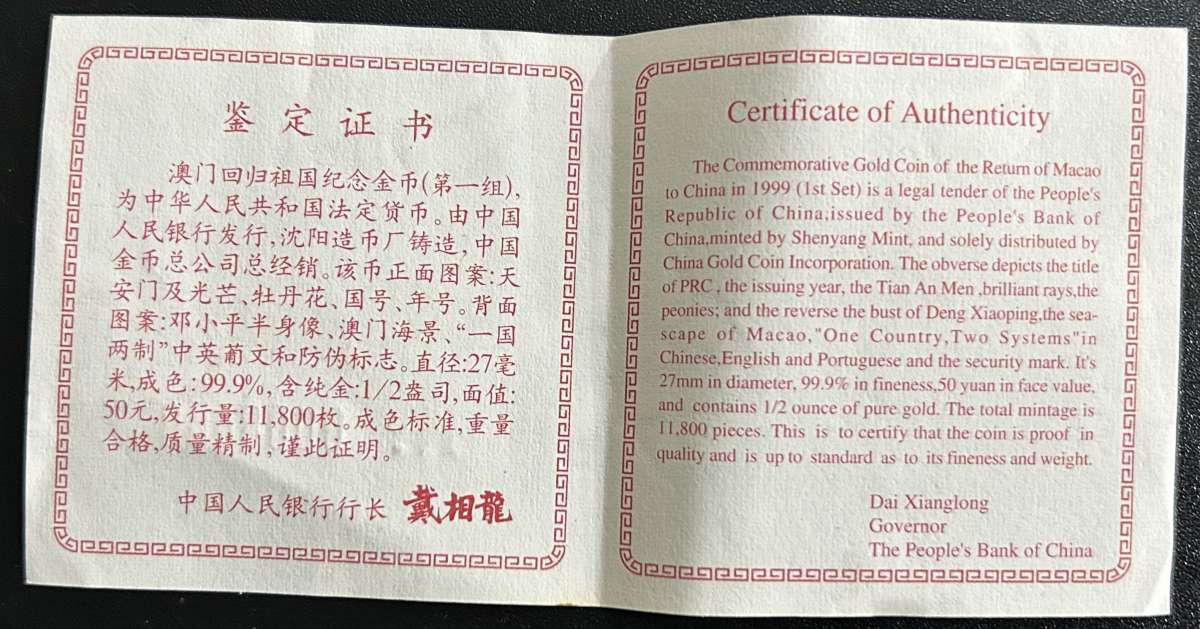 鉴定证书
澳门回归祖国纪念金币(第一组),
为中华人民共和国法定货币。由中国
人民银行发行,沈阳造币厂铸造,中国
金币总公司总经销。该币正面图案:天
安门及光芒、牡丹花、国号、年号。背面
图案:邓小平半身像、澳门海景、“一国
两制”中英葡文和防伪标志。直径:27毫
米,成色:99.9%,含纯金:1/2盎司,面值:
50元,发行量:11,800枚。成色标准,重量
合格,质量精制,谨此证明。
中国人民银行行长 戴相龍
Certificate of Authenticity
The Commemorative Gold Coin of the Return of Macao
to China in 1999 (1st Set) is a legal tender of the People's
Republic of China;issued by the People's Bank of
China,minted by Shenyang Mint, and solely distributed by
China Gold Coin Incorporation. The obverse depicts the title
of PRC , the issuing year, the Tian An Men ,brilliant rays,the
peonies; and the reverse the bust of Deng Xiaoping,the sea-
scape of Macao,"One Country,Two Systems"in
Chinese,English and Portuguese and the security mark. It's
27mm in diameter, 99.9% in fineness,50 yuan in face value,
and contains 1/2 ounce of pure gold. The total mintage is
11,800 pieces. This is to certify that the coin is proof in
quality and is up to standard as to its fineness and weight.
Dai Xianglong
Governor
The People's Bank of China